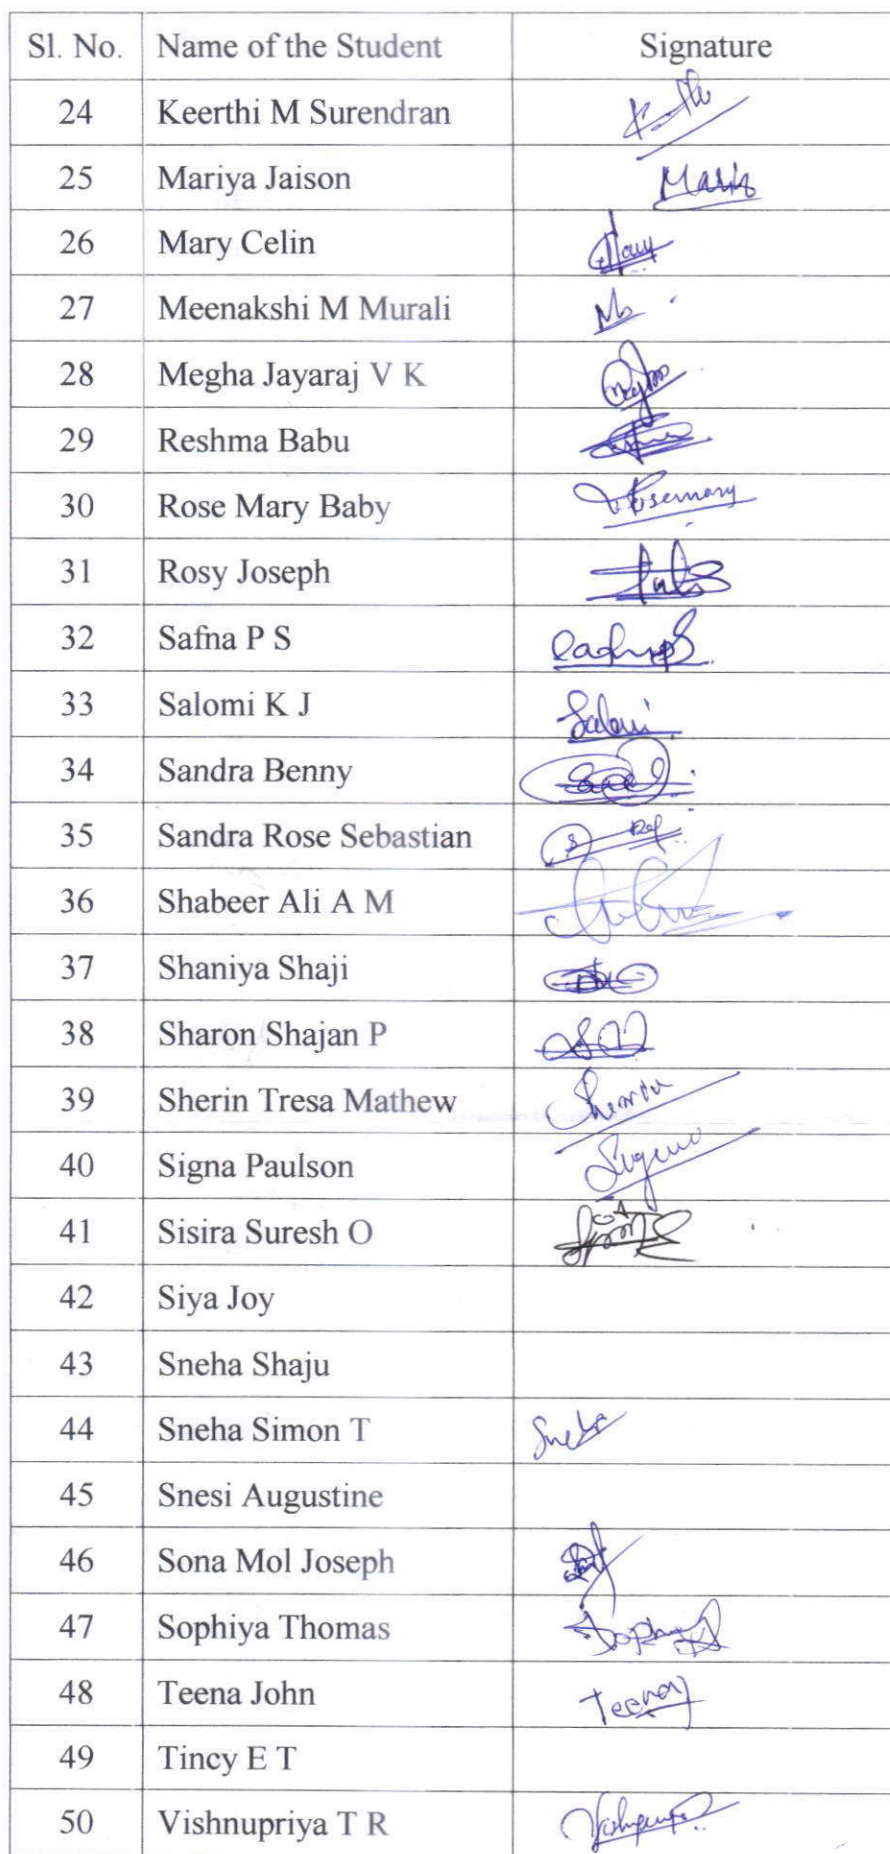 Sl. No. Name of the Student Signature
24 Keerthi M Surendran
25 Mariya Jaison
26 Mary Celin
27 Meenakshi M Murali
28 Megha Jayaraj V K
29 Reshma Babu
30 Rose Mary Baby Rosemary
31 Rosy Joseph
32 Safna P S
33 Salomi K J Salomi
34 Sandra Benny
35 Sandra Rose Sebastian
36 Shabeer Ali A M
37 Shaniya Shaji
38 Sharon Shajan P
39 Sherin Tresa Mathew
40 Signa Paulson
41 Sisira Suresh O
42 Siya Joy
43 Sneha Shaju
44 Sneha Simon T Sneha
45 Snesi Augustine
46 Sona Mol Joseph
47 Sophiya Thomas
48 Teena John
49 Tincy E T
50 Vishnupriya T R